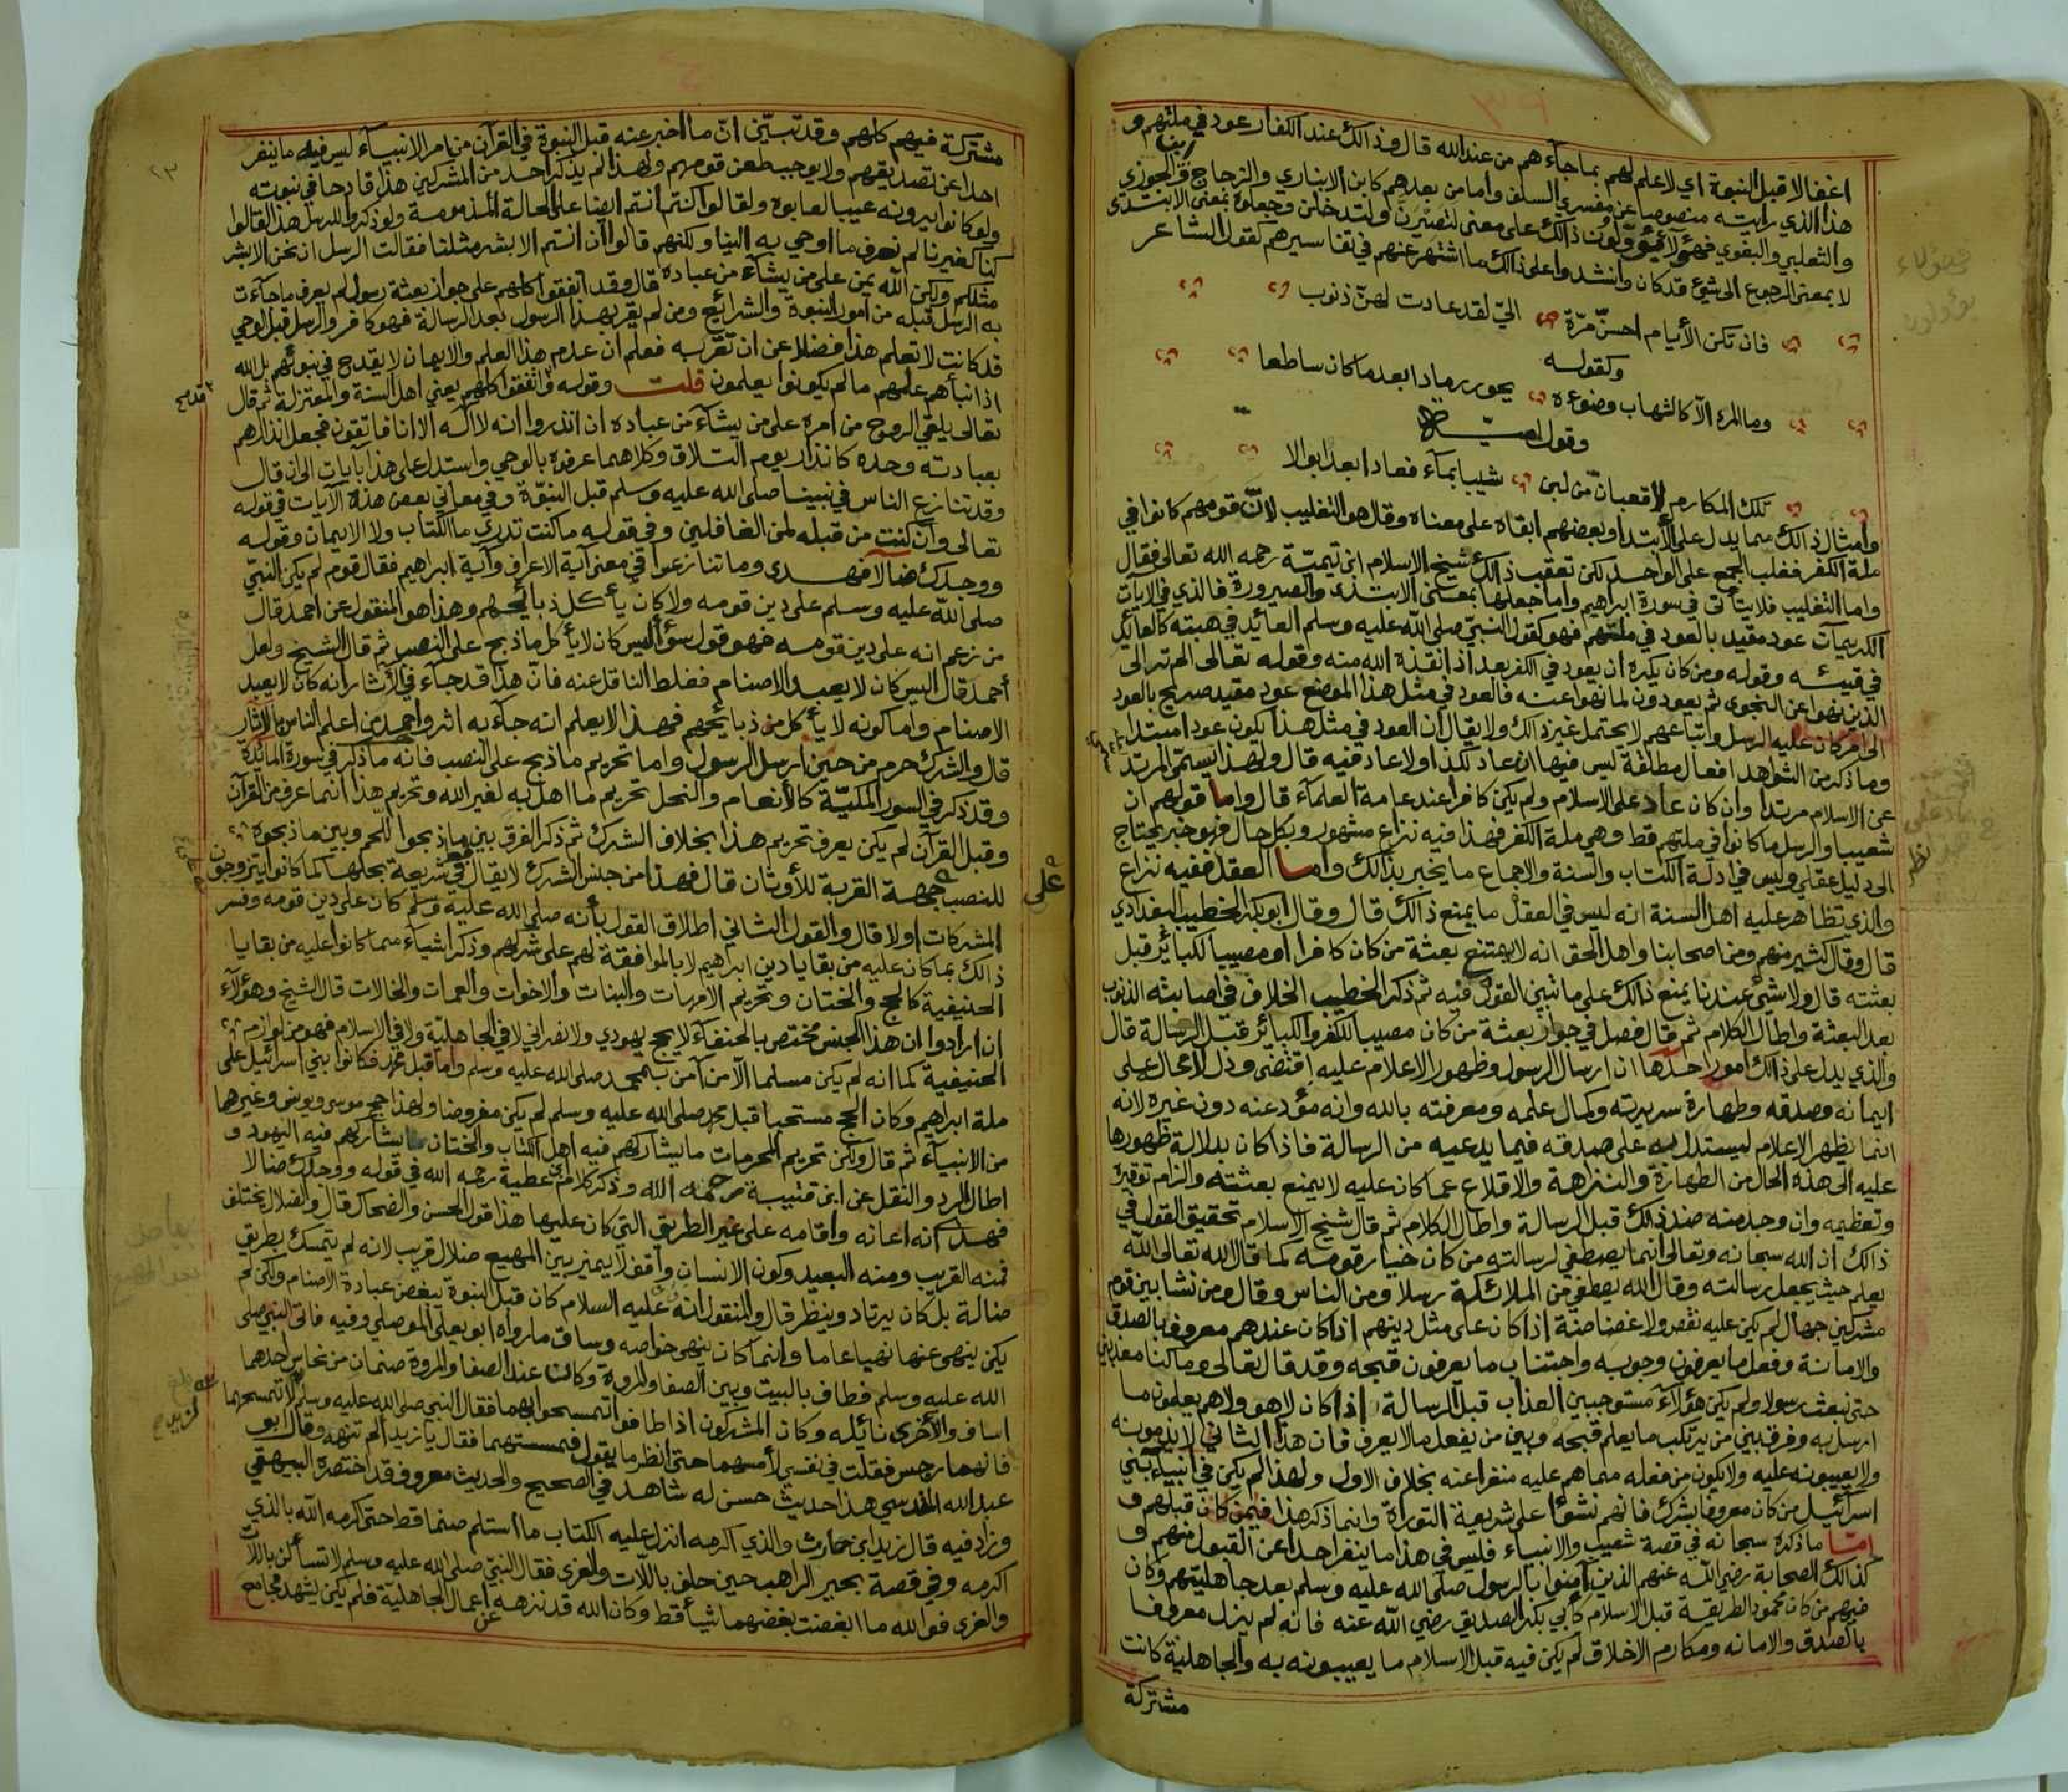 اغفالا قبل النبوة اي لا علم لهم بما جاءهم من عند الله قال وذالك عند الكفار عود في ملتهم و
هذا الذي رايته منصوصا عن مفسري السلف واما من بعدهم كابن الانباري والزجاج وابن الجوزي
والثعلبي والبغوي فهؤلاء يؤولون ذالك على معنى لتصيرن ولتدخلن وجعلوه بمعنى الابتدى
لا بمعنى الرجوع الى شيء قد كان وانشدوا على ذالك ما اشتهر عنهم في تفاسيرهم كقول الشاعر
فان تكن الأيام احسنّ مرّة اليّ لقد عادت لهنّ ذنوب
وكقوله
وما المرء الا كالشهاب وضوءه يحور رمادا بعد ما كان ساطعا
وقول اميـة
تلك المكارم لا قعبان من لبن شيبا بماء فعادا بعد ابوالا
وامثال ذالك مما يدل على الأبتدا وبعضهم ابقاه على معناه وقال هو التغليب لانّ قومهم كانوا في
ملة الكفر فغلب الجمع على الواحد لكن تعقب ذالك شيخ الاسلام ابن تيميّة رحمه الله تعالى فقال
واما التغليب فلا يتأتى في سورة ابراهيم واما جعلها بمعنى الابتدى والصيرورة فالذي في الآيات
الكريمات عود مقيد بالعود في ملتهم فهو كقول النبيّ صلى الله عليه وسلم العائد في هبته كالعائد
في قيئه وقوله ومن كان يكره ان يعود في الكفر بعد اذ انقذه الله منه وقوله تعالى الم تر الى
الذين نهوا عن النجوى ثم يعودون لما نهوا عنه فالعود في مثل هذا الموضع عود مقيد صريح بالعود
الى امر كان عليه الرسل واتباعهم لا يحتمل غير ذالك ولا يقال ان العود في مثل هذا يكون عود ابتدا
وما ذكر من الشواهد افعال مطلقة ليس فيها ان عاد لكذا ولا عاد فيه قال ولهذا يسمّى المرتد
عن الاسلام مرتدا وان كان عاد على الاسلام ولم يكن كافرا عند عامة العلماء قال واما قولهم ان
شعيبا والرسل ما كانوا في ملتهم قط وهي ملة الكفر فهذا فيه نزاع مشهور وبكل حال فهو خبر يحتاج
الى دليل عقلي وليس في ادلة الكتاب والسنة والاجماع ما يخبر بذالك واما العقل ففيه نزاع
والذي تظاهر عليه اهل السنة انه ليس في العقل ما يمنع ذالك قال وقال ابو بكر الخطيب البغدادي
قال وقال كثير منهم ومن اصحابنا واهل الحق انه لا يمتنع بعثة من كان كافرا او مصيبا لكبائر قبل
بعثته قال ولا شيء عندنا يمنع ذالك على ما نبين القول فيه ثم ذكر الخطيب الخلاف في اصابته الذنوب
بعد البعثة واطال الكلام ثم قال فصل في جواز بعثة من كان مصيبا للكفر والكبائر قبل الرسالة قال
والذي يدل على ذالك امور احدها ان ارسال الرسول وظهور الاعلام عليه اقتضى ودل لا محال على
ايمانه وصدقه وطهارة سريرته وكمال علمه ومعرفته بالله وانه مؤد عنه دون غيره لانه
انما يظهر الاعلام ليستدل به على صدقه فيما يدعيه من الرسالة فاذا كان بدلالة ظهورها
عليه الى هذه الحال من الطهارة والنزاهة والاقلاع عما كان عليه لا يمنع بعثته والزام توقيره
وتعظيمه وان وجد منه ضد ذالك قبل الرسالة واطال الكلام ثم قال شيخ الاسلام تحقيق القول في
ذالك ان الله سبحانه وتعالى انما يصطفي لرسالته من كان خيار قومه كما قال الله تعالى الله
يعلم حيث يجعل رسالته وقال الله يصطفي من الملائكة رسلا ومن الناس وقال ومن نشا بين قوم
مشركين جهال لم يكن عليه نقص ولا غضاضة اذا كان على مثل دينهم اذا كان عندهم معروفا بالصدق
والامانة وفعل ما يعرفون وجوبه واجتناب ما يعرفون قبحه وقد قال تعالى وما كنا معذبين
حتى نبعث رسولا ولم يكن هؤلاء مستوجبين العذاب قبل الرسالة اذا كان لا هو ولا هم يعلمون ما
ارسل به وفرق بين من يرتكب ما يعلم قبحه وبين من يفعل ما لا يعرف فان هذا الثاني لا يذمونه
ولا يعيبونه عليه ولا يكون من فعله مما هم عليه منفرا عنه بخلاف الاول ولهذا لم يكن في انبياء بني
اسرائيل من كان معروفا بشرك فانهم نشؤا على شريعة التوراة وانما ذكر هذا فيمن كان قبلهم و
امّا ما ذكره سبحانه في قصة شعيب والانبياء فليس في هذا ما ينفر احدا عن القبول منهم و
كذالك الصحابة رضي الله عنهم الذين آمنوا بالرسول صلى الله عليه وسلم بعد جاهليتهم وكان
فيهم من كان محمود الطريقة قبل الاسلام كأبي بكر الصديق رضي الله عنه فانه لم يزل معروفا
بالصدق والامانه ومكارم الاخلاق لم يكن فيه قبل الاسلام ما يعيبونه به والجاهلية كانت
مشتركة
مشتركة فيهم كلهم وقد تبيّن انّ ما اخبر عنه قبل النبوة في القرآن من امر الانبياء ليس فيه ما ينفر
احدا عن تصديقهم ولا يوجب طعن قومهم ولهذا لم يذكر احد من المشركين هذا قادحا في نبوته
ولو كانوا يرونه عيبا لعابوه ولقالوا كنتم انتم ايضا على الحالة المذمومة ولو ذكروا للرسل هذا لقالوا
كنا كغيرنا لم نعرف ما اوحي به الينا ولكنهم قالوا ان انتم الا بشر مثلنا فقالت الرسل ان نحن الا بشر
مثلكم ولكن الله يمن على من يشاء من عباده قال وقد اتفقوا كلهم على جواز بعثة رسول لم يعرف ما جاءت
به الرسل قبله من امور النبوة والشرائع ومن لم يقر بهذا الرسول بعد الرسالة فهو كافر والرسل قبل الوحي
قد كانت لا تعلم هذا فضلا عن ان تقر به فعلم ان عدم هذا العلم والايمان لا يقدح في نبوتهم بل الله
اذا نبأهم علمهم ما لم يكونوا يعلمون قلت وقوله واتفقوا كلهم يعني اهل السنة والمعتزلة ثم قال
تعالى يلقي الروح من امره على من يشاء من عباده ان انذروا انه لا اله الا انا فاتقون فجعل انذارهم
بعبادته وحده كانذار يوم التلاق وكلاهما عرفوه بالوحي واستدل على هذا بآيات الى ان قال
وقد تنازع الناس في نبينا صلى الله عليه وسلم قبل النبوّة وفي معاني بعض هذه الآيات في قوله
تعالى وان كنت من قبله لمن الغافلين وفي قوله ما كنت تدري ما الكتاب ولا الايمان وقوله
ووجدك ضالا فهدى وما تنازعوا في معنى آية الاعراف وآية ابراهيم فقال قوم لم يكن النبيّ
صلى الله عليه وسلم على دين قومه ولا كان يأكل ذبائحهم وهذا هو المنقول عن احمد قال
من زعم انه على دين قومه فهو قول سوء اليس كان لا يأكل ما ذبح على النصب ثم قال الشيخ ولعل
أحمد قال اليس كان لا يعبد الاصنام فغلط الناقل عنه فانّ هذا قد جاء في الآثار انه كان لا يعبد
الاصنام واما كونه لا يأكل من ذبائحهم فهذا لا يعلم انه جاء به اثر واحمد من اعلم الناس بالآثار
قال والشرك حرم من حين ارسل الرسول واما تحريم ما ذبح على النصب فانه ما ذكر في سورة المائدة
وقد ذكر في السور المكيّة كالأنعام والنحل تحريم ما اهل به لغير الله وتحريم هذا انما عرف من القرآن
وقبل القرآن لم يكن يعرف تحريم هذا بخلاف الشرك ثم ذكر الفرق بين ما ذبحوا للحم وبين ما ذبحوه
للنصب جهة القربة للأوثان قال فهذا من جنس الشرك لا يقال في شريعة بحلها كما كانوا يتزوجون
على
المشركات اولا قال والقول الثاني اطلاق القول بأنه صلى الله عليه وسلم كان على دين قومه وفسر
ذالك بما كان عليه من بقايا دين ابراهيم لا بالموافقة لهم على شركهم وذكر اشياء مما كانوا عليه من بقايا
الحنيفية كالحج والختان وتحريم الامهات والبنات والاخوات والعمات والخالات قال الشيخ وهؤلاء
ان ارادوا ان هذا الجنس مختص بالحنفاء لا يحج يهودي ولا نصراني لا في الجاهلية ولا في الاسلام فهو من لوازم
الحنيفية كما انه لم يكن مسلما الا من آمن بمحمد صلى الله عليه وسلم واما قبل محمد فكانوا بني اسرائيل على
ملة ابراهيم وكان الحج مستحبا قبل محمد صلى الله عليه وسلم لم يكن مفروضا ولهذا حج موسى ويونس وغيرهما
من الانبياء ثم قال ولكن تحريم المحرمات ما يشاركهم فيه اهل الكتاب والختان يشاركهم فيه اليهود و
اطال الرد والنقل عن ابن قتيبة رحمه الله وذكر كلام ابن عطية رحمه الله في قوله ووجدك ضالا
فهدى انه اعانه واقامه على غير الطريق التي كان عليها هذا قول الحسن والضحاك قال والضلال يختلف
فمنه القريب ومنه البعيد وكون الانسان واقفا لا يميز بين المهيع ضلال قريب لانه لم يتمسك بطريق
ضالة بل كان يرتاد وينظر قال والمنقول انه عليه السلام كان قبل النبوة يبغض عبادة الاصنام ولكن لم
يكن ينهى عنها نهيا عاما وانما كان ينهى خواصه وساق ما رواه ابو يعلى الموصلي وفيه فاتى النبي صلى
الله عليه وسلم فطاف بالبيت وبين الصفا والمروة وكانت عند الصفا والمروة صنمان من نحاس احدهما
اساف والأخرى نائله وكان المشركون اذا طافوا تمسحوا بهما فقال النبي صلى الله عليه وسلم لا تمسحهما
فانهما رجس فقلت في نفسي لأمسهما حتى انظر ما يقول فمسستهما فقال يا زيد الم تنهه وقال ابو
عبد الله المقدسي هذا حديث حسن له شاهد في الصحيح والحديث معروف قد اختصره البيهقي
وزاد فيه قال زيد ابن حارث والذي اكرمه انزل عليه الكتاب ما استلم صنما قط حتى اكرمه الله بالذي
اكرمه وفي قصة بحير الراهب حين حلف باللات والعزى فقال النبيّ صلى الله عليه وسلم لا تسألن باللات
والعزى فوالله ما ابغضت بغضهما شيأ قط وكان الله قد نزهه عن اعمال الجاهلية فلم يكن يشهد مجامع